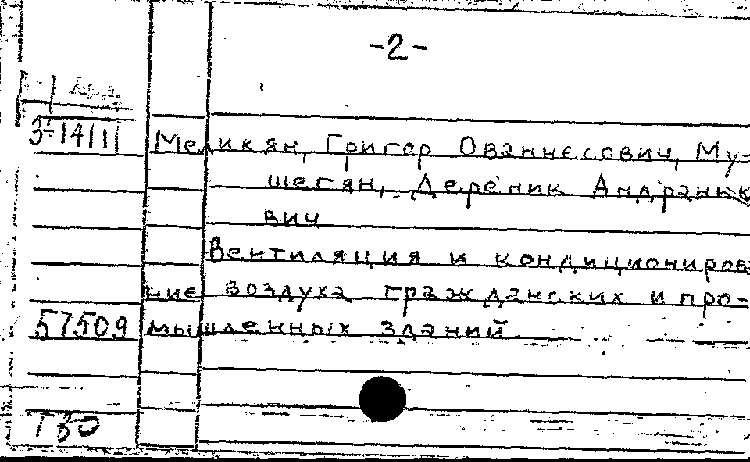 -2-
З-14111 Меликян, Григор Ованнесович, Му-
шегян, Дереник Андраник
вич
Вентиляция и кондициониров
ние воздуха гражданских и про-
57509 мышленных зданий